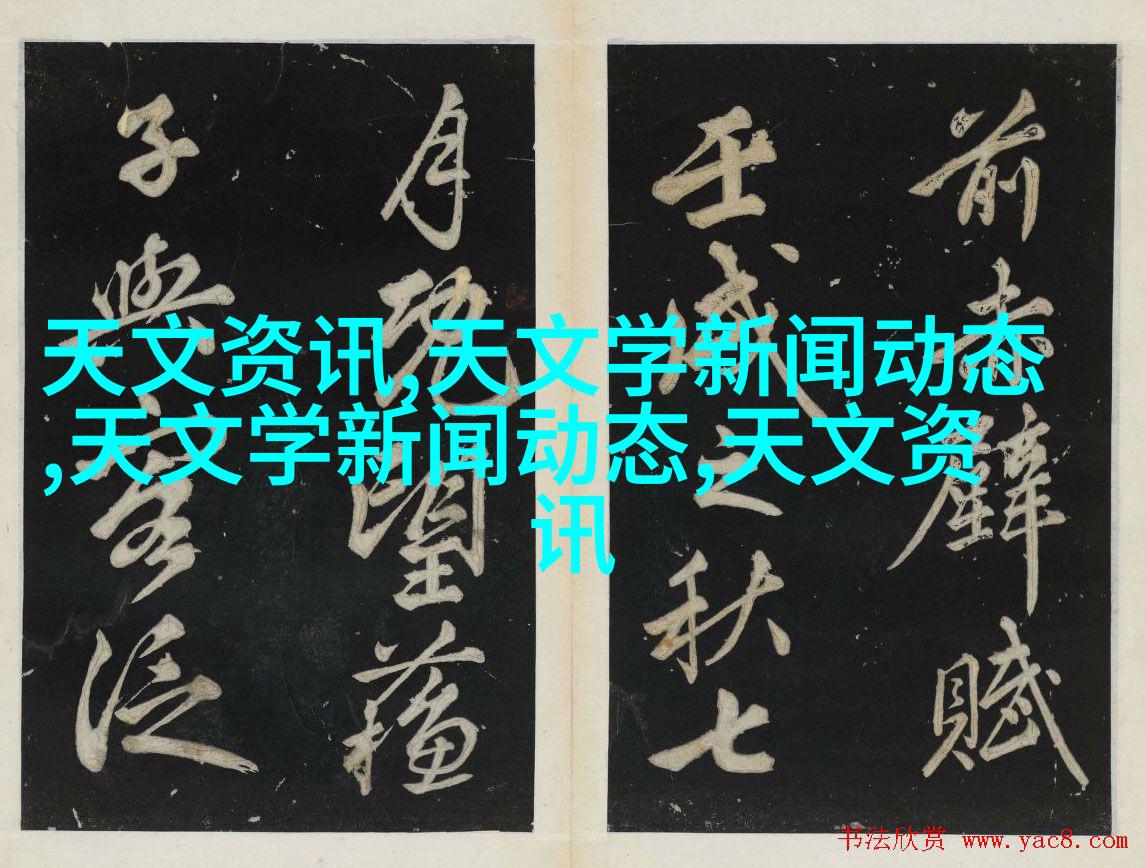 前赤壁賦
壬戌之秋七
月既望蘇
子與客泛
天文资讯,天文学新闻动态
,天文学新闻动态,天文资
讯
书法欣赏 www.yac8.com